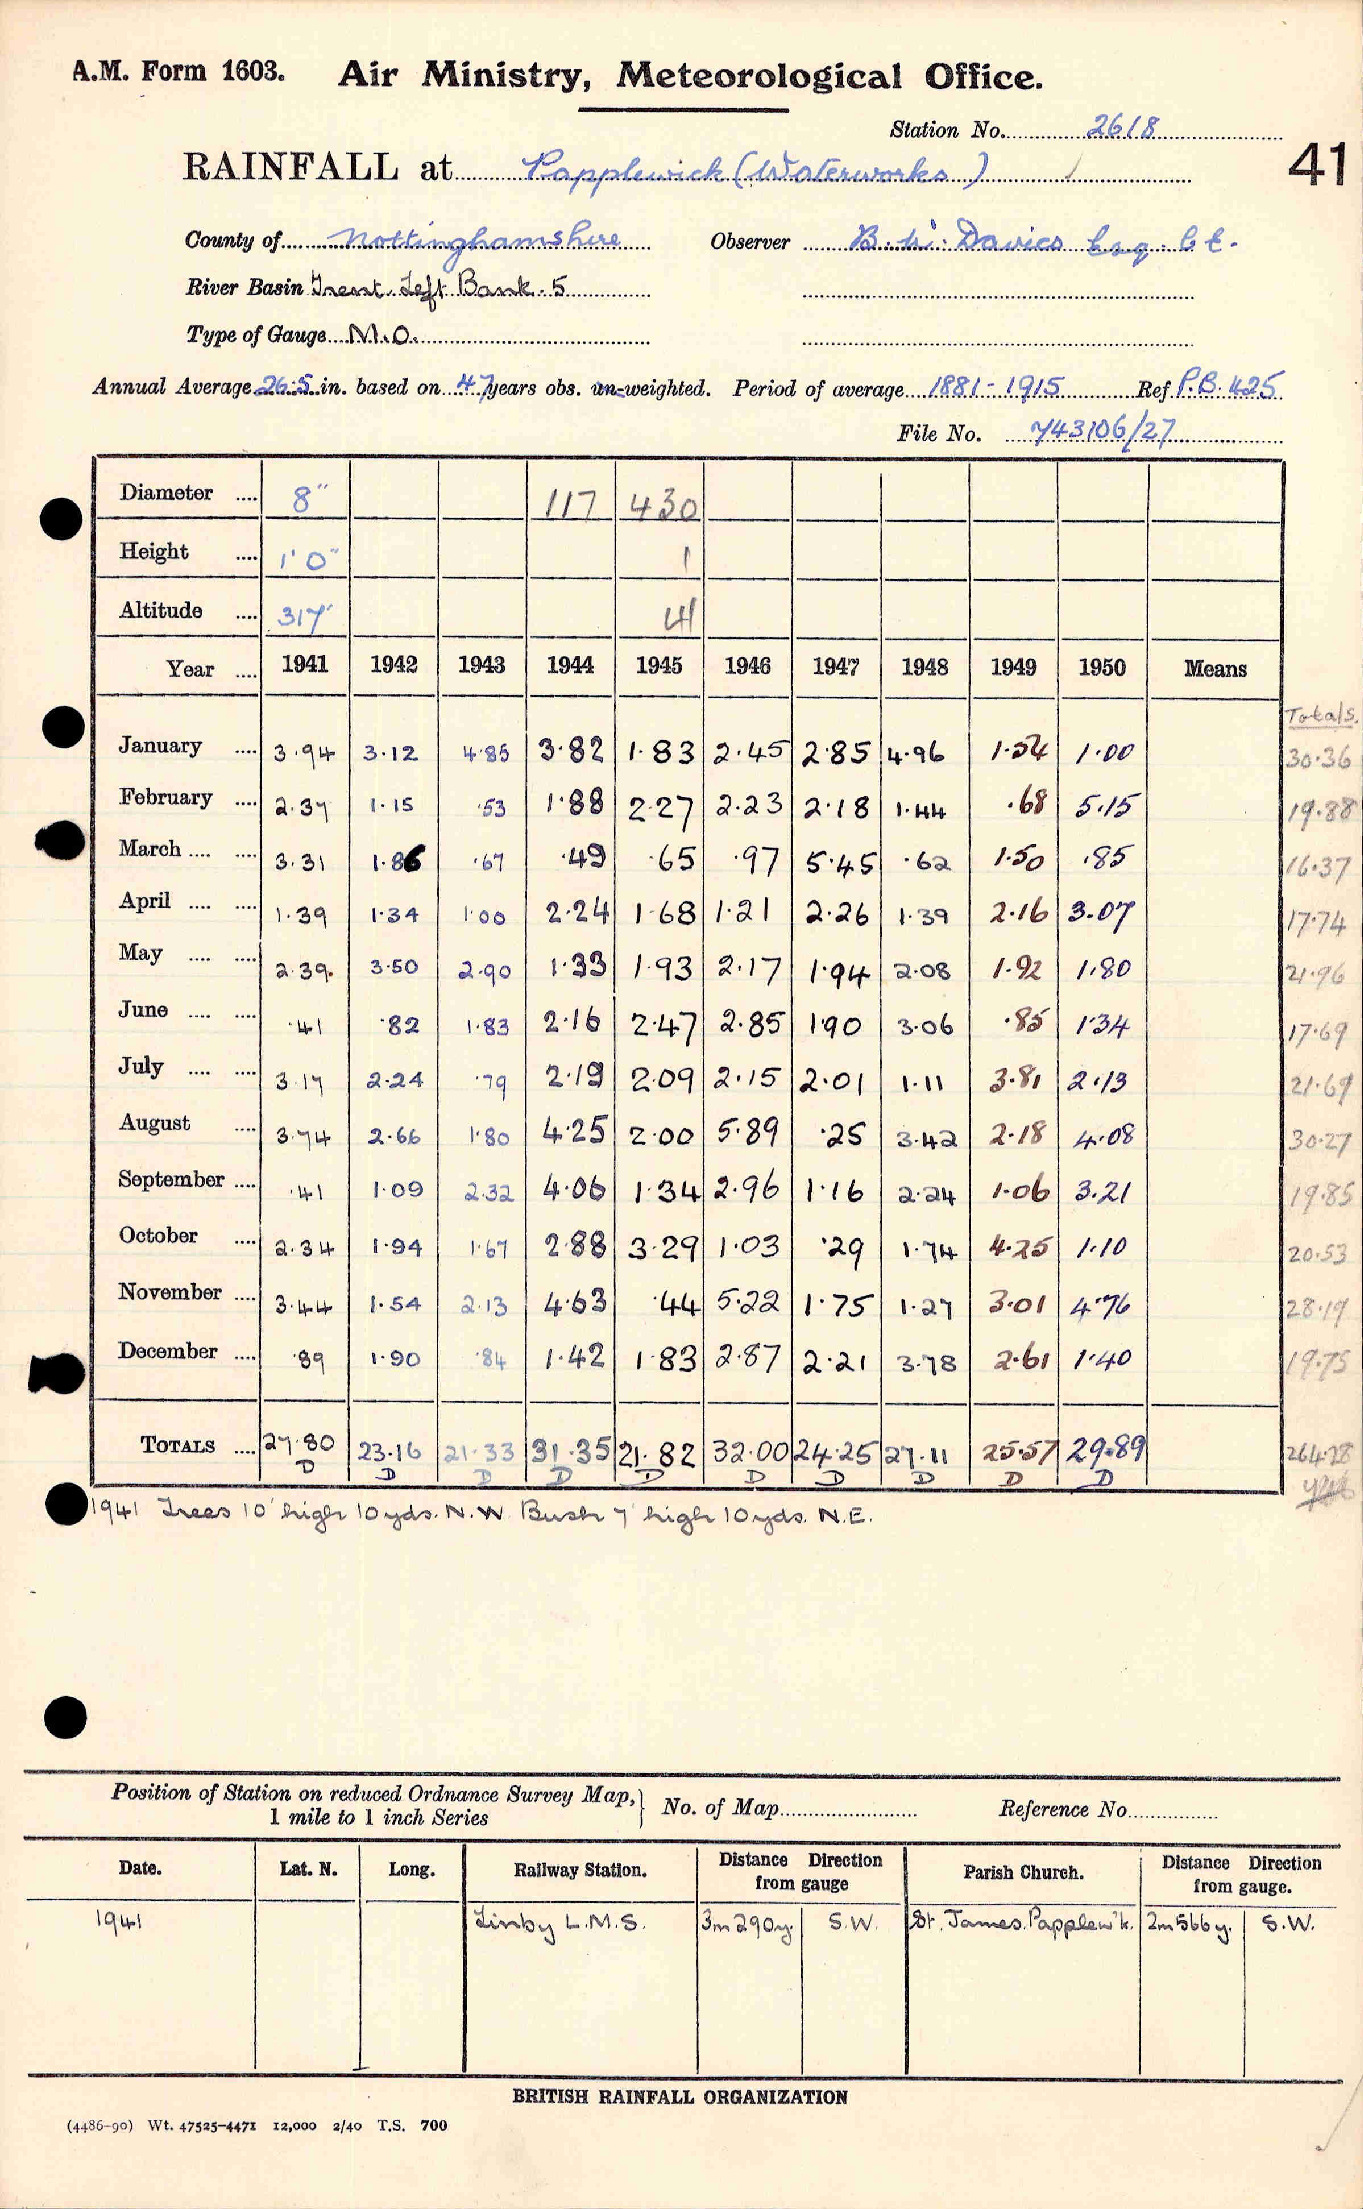 A.M. Form 1603. Air Ministry, Meteorological Office.
Station No. 2618
41
RAINFALL at Papplewick (Waterworks)
County of Nottinghamshire Observer B. W. Davies Esq. C.E.
River Basin Trent. Left Bank. 5
Type of Gauge M.O.
Annual Average 26.5 in. based on 47 years obs. un-weighted. Period of average 1881-1915 Ref P.B. 425
File No. 743106/27
Diameter .... 8" 117 430
Height .... 1' 0" 1
Altitude .... 317' 41
Year .... 1941 1942 1943 1944 1945 1946 1947 1948 1949 1950 Means
Totals.
January .... 3.94 3.12 4.85 3.82 1.83 2.45 2.85 4.96 1.54 1.00 30.36
February .... 2.37 1.15 .53 1.88 2.27 2.23 2.18 1.44 .68 5.15 19.88
March .... .... 3.31 1.86 .67 .49 .65 .97 5.45 .62 1.50 .85 16.37
April .... .... 1.39 1.34 1.00 2.24 1.68 1.21 2.26 1.39 2.16 3.07 17.74
May .... .... 2.39. 3.50 2.90 1.33 1.93 2.17 1.94 2.08 1.92 1.80 21.96
June .... .... .41 .82 1.83 2.16 2.47 2.85 1.90 3.06 .85 1.34 17.69
July .... .... 3.17 2.24 .79 2.19 2.09 2.15 2.01 1.11 3.81 2.13 21.69
August .... 3.74 2.66 1.80 4.25 2.00 5.89 .25 3.42 2.18 4.08 30.27
September .... .41 1.09 2.32 4.06 1.34 2.96 1.16 2.24 1.06 3.21 19.85
October .... 2.34 1.94 1.67 2.88 3.29 1.03 .29 1.74 4.25 1.10 20.53
November .... 3.44 1.54 2.13 4.63 .44 5.22 1.75 1.27 3.01 4.76 28.19
December .... .89 1.90 .84 1.42 1.83 2.87 2.21 3.78 2.61 1.40 19.75
TOTALS .... 27.80 23.16 21.33 31.35 21.82 32.00 24.25 27.11 25.57 29.89 264.28
D D D D D D D D D D
1941 Trees 10' high 10yds. N.W. Bush 7' high 10yds. N.E.
Position of Station on reduced Ordnance Survey Map, 1 mile to 1 inch Series } No. of Map Reference No.
Date. Lat. N. Long. Railway Station. Distance Direction from gauge Parish Church. Distance Direction from gauge.
1941 Linby L.M.S. 3m 290y. S.W. St. James. Papplew'k. 2m 566y. S.W.
BRITISH RAINFALL ORGANIZATION
(4486-90) Wt. 47525-4471 12,000 2/40 T.S. 700